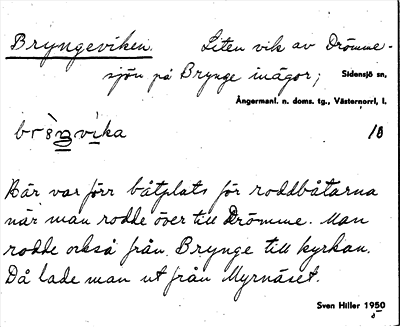 Bryngeviken. Liten vik av Drömme-
sjön på Brynge inägor; Sidensjö sn,
Ångermanl. n. doms. tg., Västernorrl. l.
18
Här var förr båtplats för roddbåtarna
när man rodde över till Drömme. Man
rodde också från Brynge till kyrkan.
Då lade man ut från Myrnäset.
Sven Hiller 1950